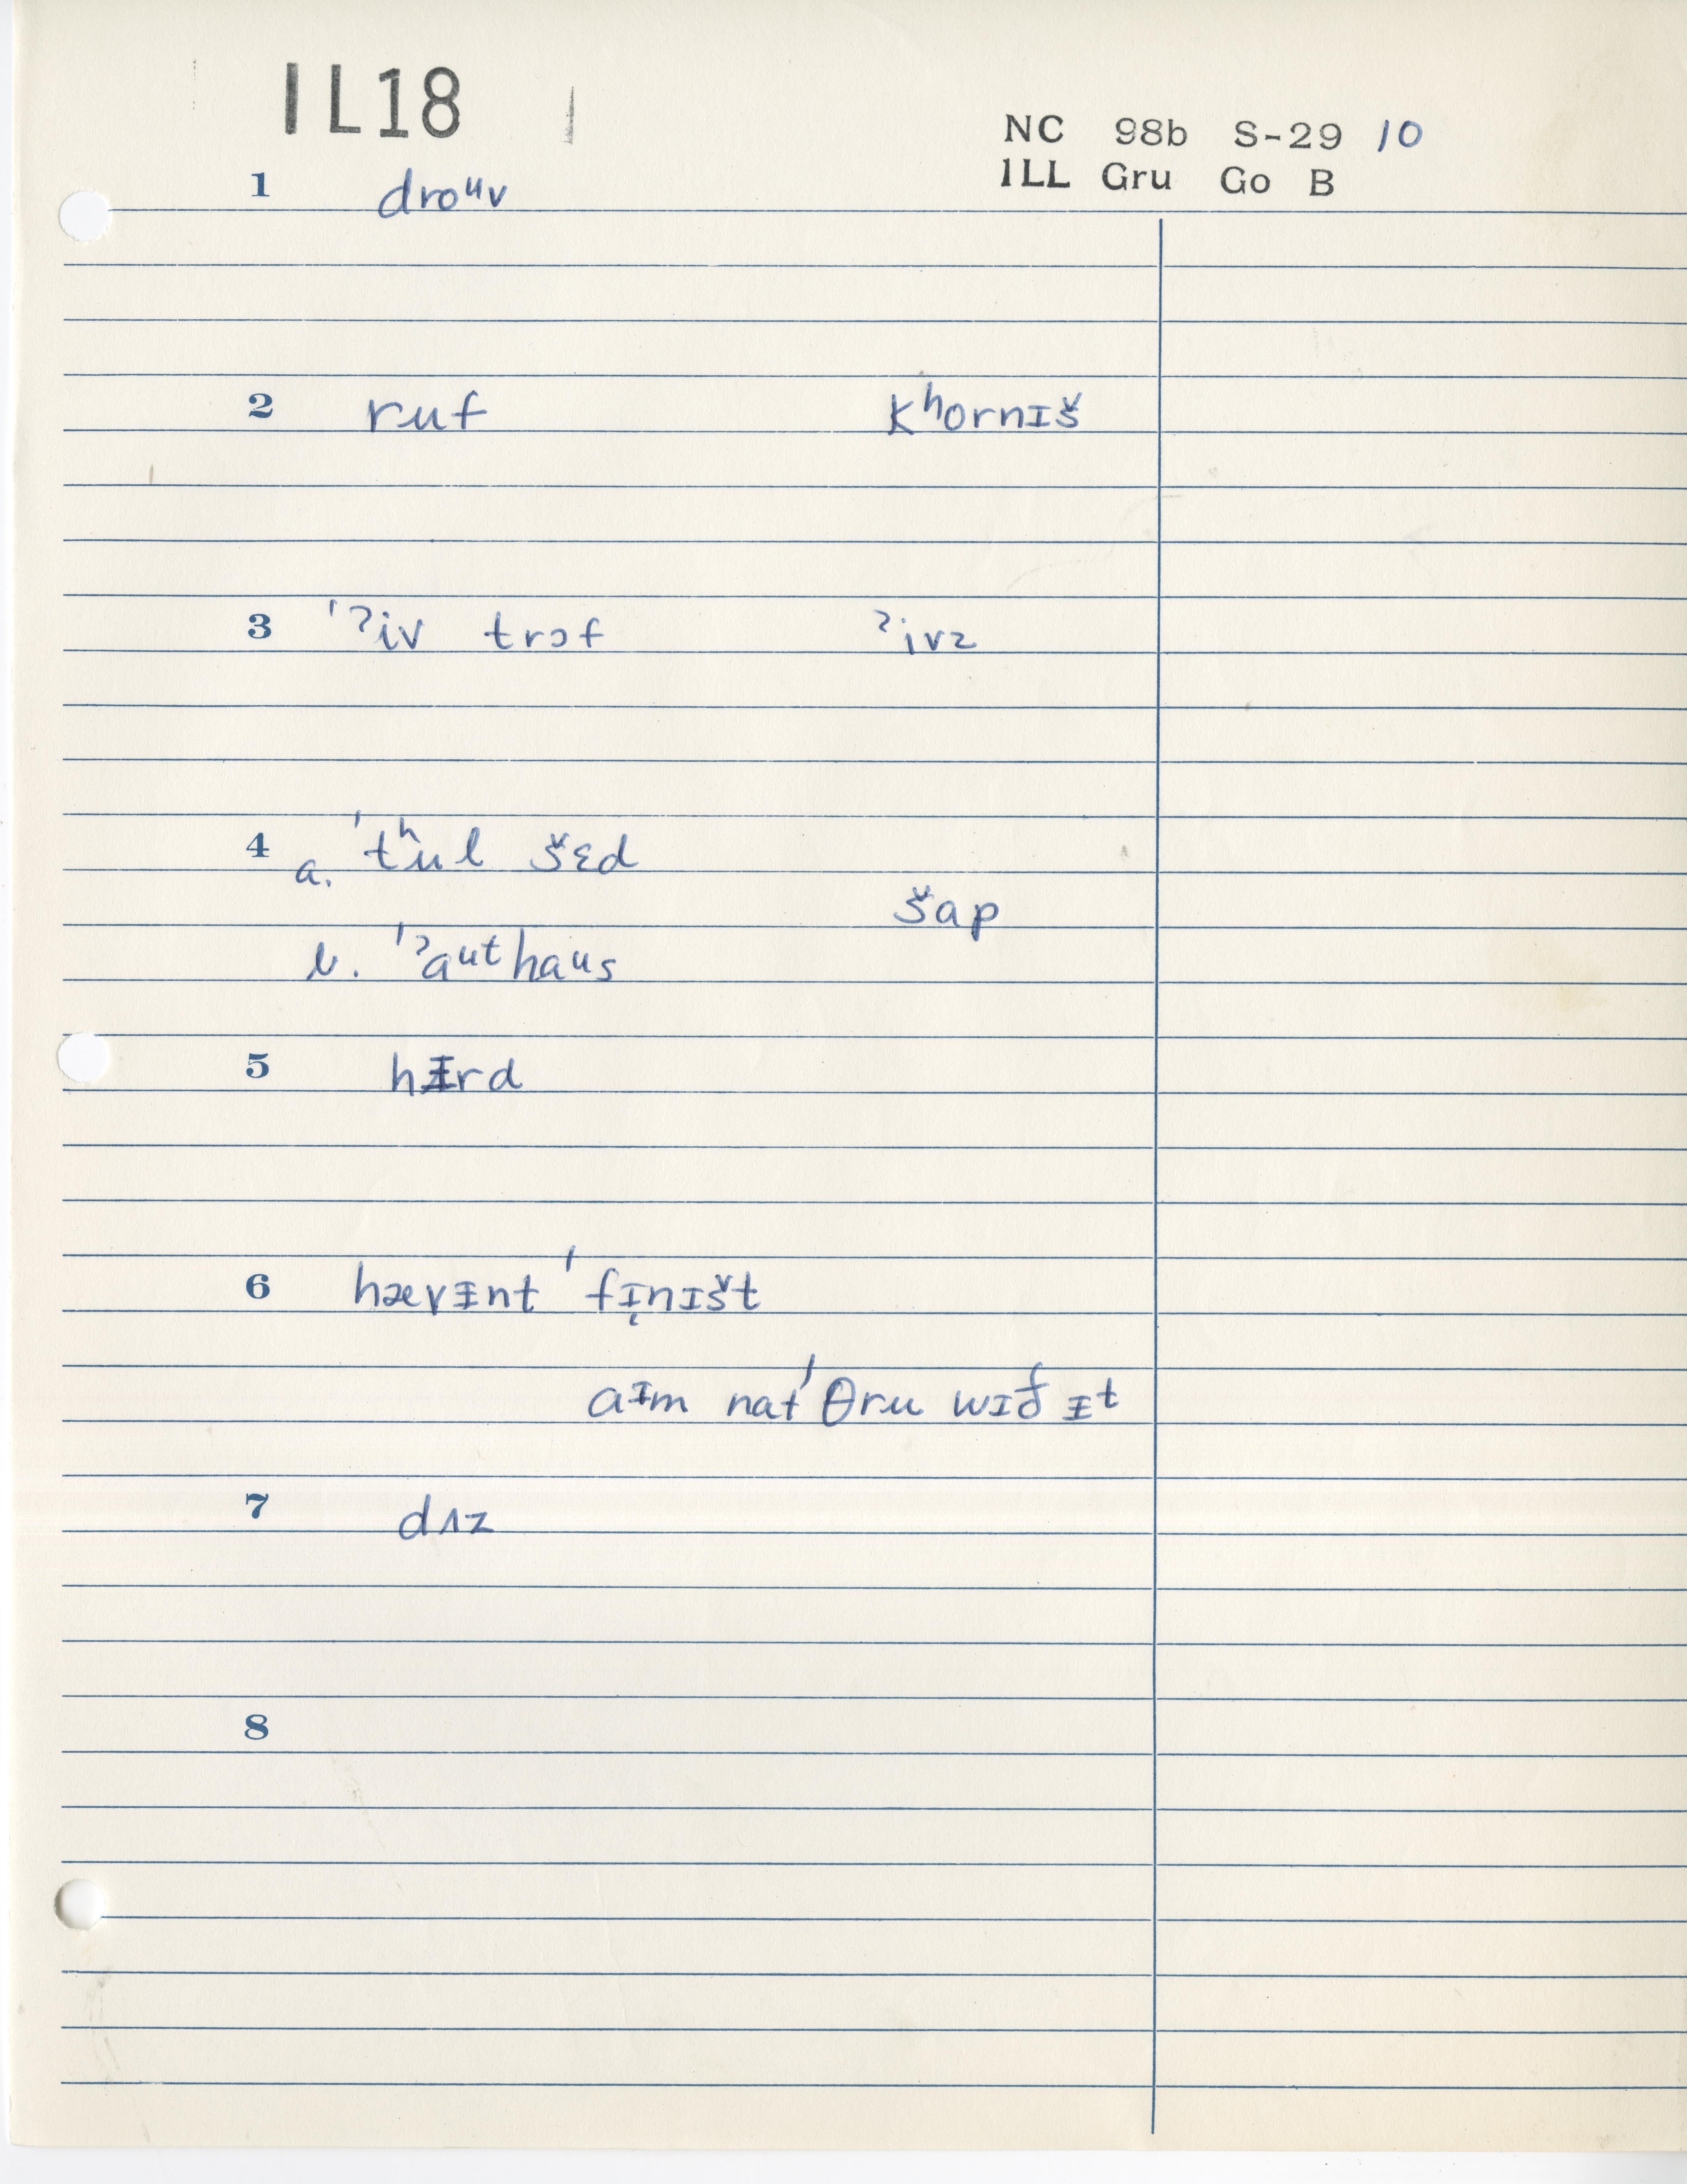 IL18
NC 98b S-29 10
ILL Gru Go B
1 droᵘv
2 ruf kʰornɪš
3 ˈˀiv trɔf ˀivz
4 a. ˈtʰul šɛd
šap
b. ˈˀaᵘthaᵘs
5 hɪ̵rd
6 hævɪ̵nt ˈfɪ̨nɪšt
aɪm nat ˈθru wɪð ɪ̵t
7 dʌz
8